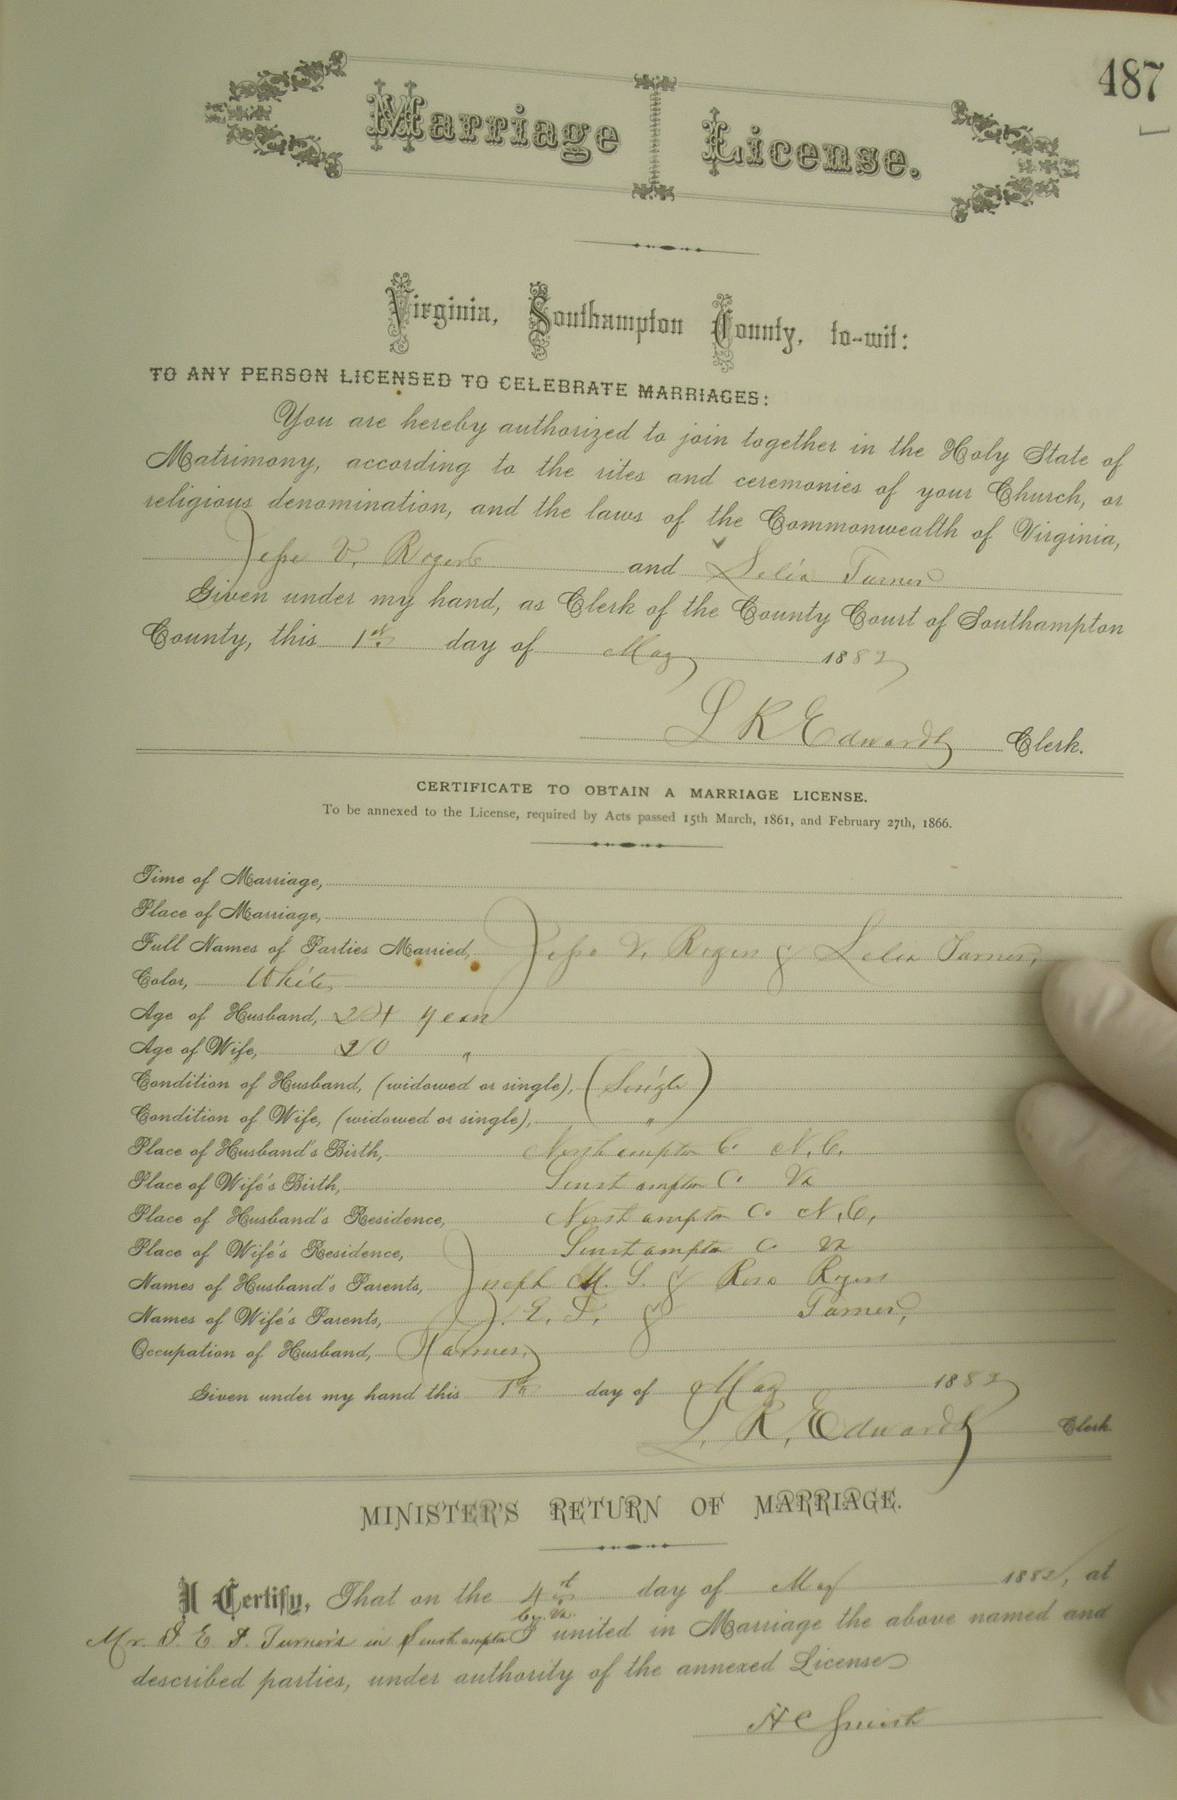 487
Marriage License.
Virginia, Southampton County, to-wit:
TO ANY PERSON LICENSED TO CELEBRATE MARRIAGES:
You are hereby authorized to join together in the Holy State of
Matrimony, according to the rites and ceremonies of your Church, or
religious denomination, and the laws of the Commonwealth of Virginia,
Jesse V. Rogers and Lelia Turner
Given under my hand, as Clerk of the County Court of Southampton
County, this 1st day of May 1882
L R Edwards Clerk.
CERTIFICATE TO OBTAIN A MARRIAGE LICENSE.
To be annexed to the License, required by Acts passed 15th March, 1861, and February 27th, 1866.
Time of Marriage,
Place of Marriage,
Full Names of Parties Married, Jesse V. Rogers & Lelia Turner,
Color, White,
Age of Husband, 24 years
Age of Wife, 20 "
Condition of Husband, (widowed or single), (Single)
Condition of Wife, (widowed or single), "
Place of Husband's Birth, Northampton Co N.C.
Place of Wife's Birth, Southampton Co Va
Place of Husband's Residence, Northampton Co N.C,
Place of Wife's Residence, Southampton Co Va
Names of Husband's Parents, Joseph M. & Rogers
Names of Wife's Parents, J. E. & Turner,
Occupation of Husband, Farmer,
Given under my hand this 1st day of May 1882
L. R. Edwards Clerk.
MINISTER'S RETURN OF MARRIAGE.
I Certify, That on the 4 day of May 1882, at
Co. Va.
Mr. J. E. Turner's in Southampton united in Marriage the above named and
described parties, under authority of the annexed License
H C Smith